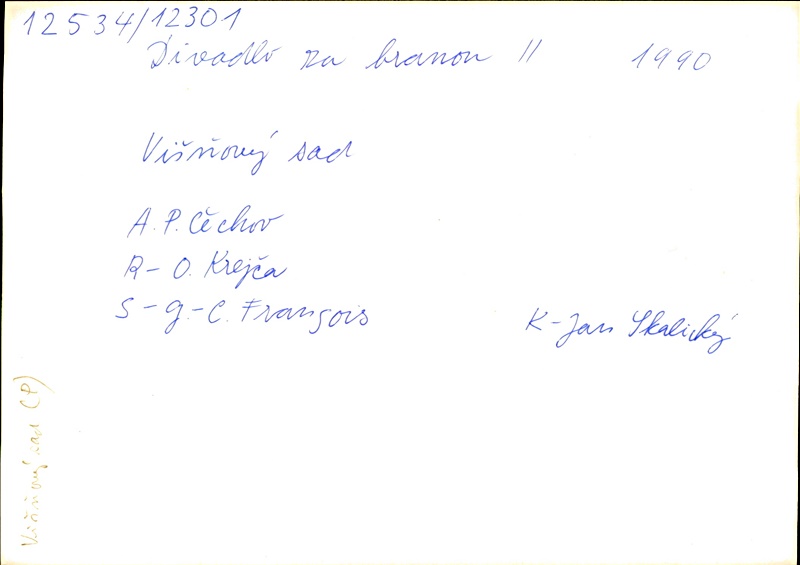 12534/12301
Divadlo za branou II 1990
Višňový sad
A. P. Čechov
R - O. Krejča
S - g. - C. François
K - Jan Skalický
Višňový sad (P)